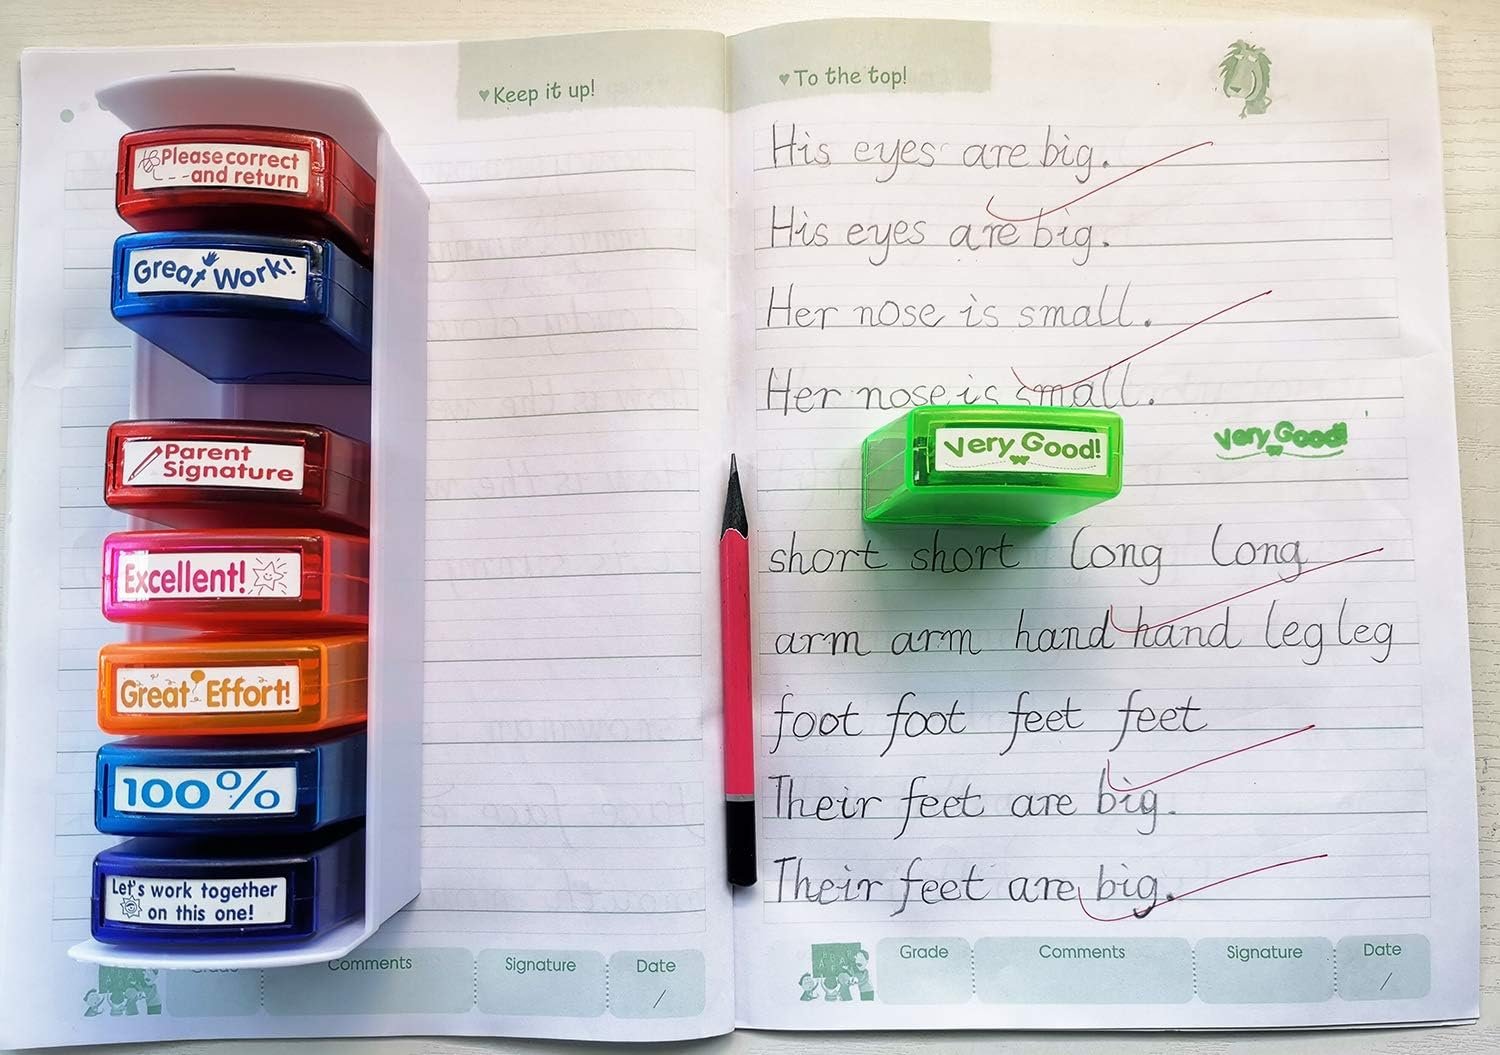 Keep it up!
Please correct
and return
Great Work!
Parent
Signature
Excellent!
Great Effort!
100%
Let's work together
on this one!
Grade
Comments
Signature
Date
/
To the top!
His eyes are big.
His eyes are big.
Her nose is small.
Her nose is small.
Very Good!
Very Good!
short short long long
arm arm hand hand leg leg
foot foot feet feet
Their feet are big.
Their feet are big.
Grade
Comments
Signature
Date
/